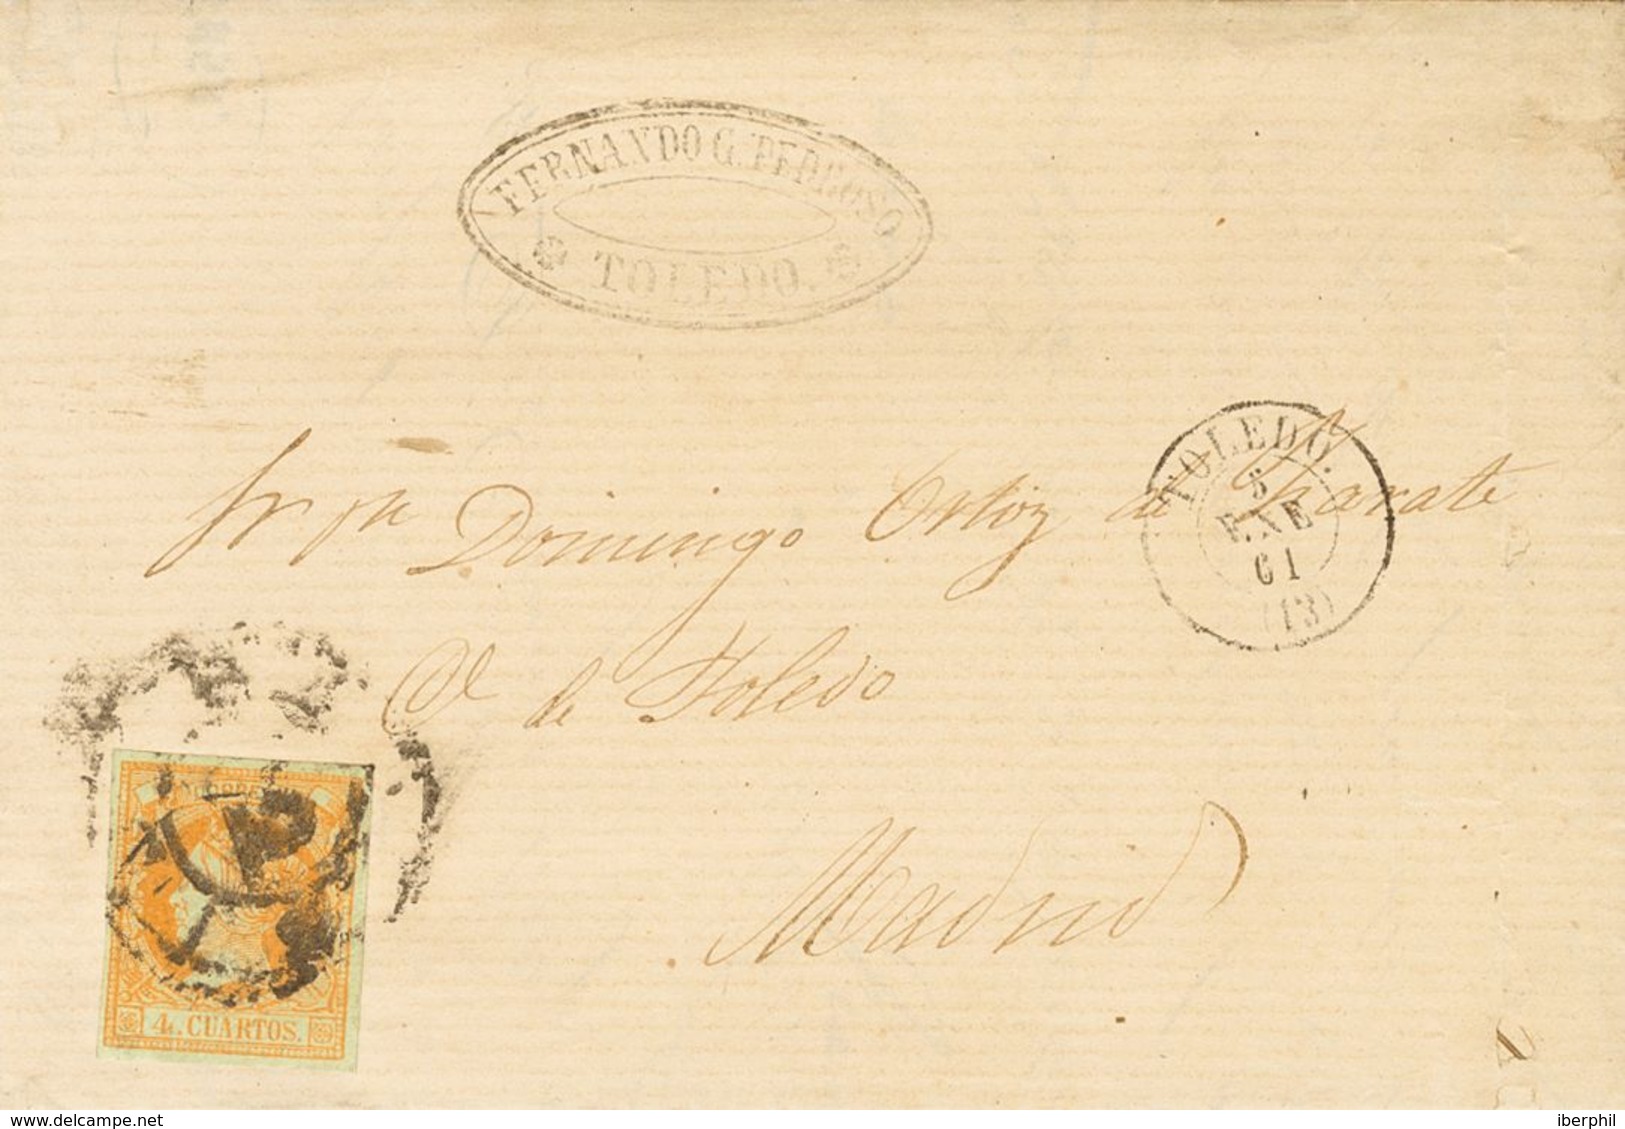 FERNANDO G. PEDROSO
TOLEDO.
TOLEDO.
5
ENE
61
(13)
Sr Dn Domingo Ortiz de Zarate
C de Toledo
Madrid
CORREOS
4 CUARTOS.
delcampe.net
iberphil